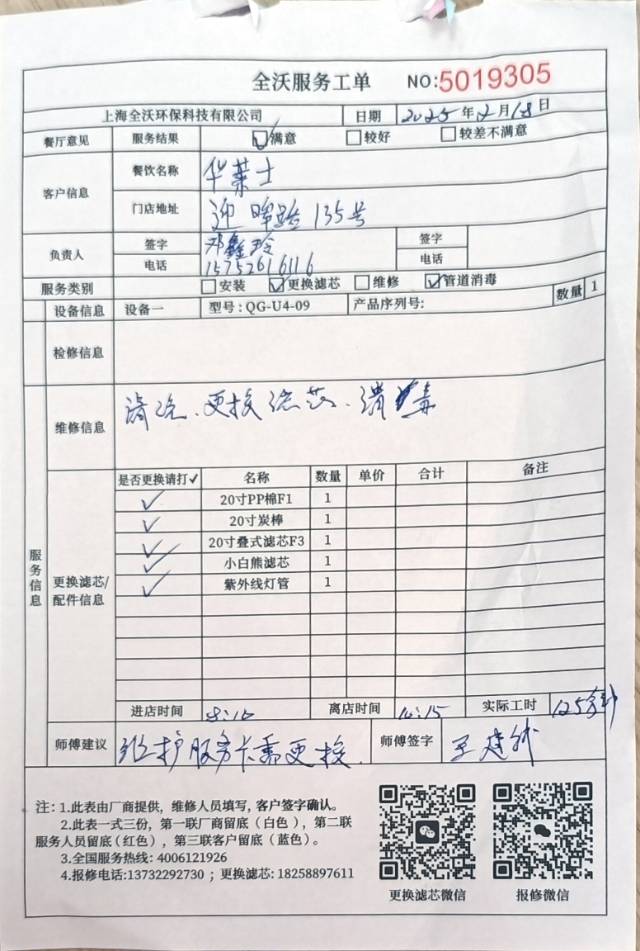 全沃服务工单 NO:5019305
上海全沃环保科技有限公司 日期 2025年2月18日
餐厅意见 服务结果 ☑满意 □较好 □较差不满意
客户信息 餐饮名称 华莱士
门店地址 迎晖路135号
负责人 签字 邓鑫玲 签字
电话 15752616116 电话
服务类别 □安装 ☑更换滤芯 □维修 ☑管道消毒
设备信息 设备一 型号:QG-U4-09 产品序列号: 数量 1
检修信息
维修信息 清洗、更换滤芯、消毒
服务信息
更换滤芯/配件信息
是否更换请打✓ 名称 数量 单价 合计 备注
✓ 20寸PP棉F1 1
✓ 20寸炭棒 1
✓ 20寸叠式滤芯F3 1
✓ 小白熊滤芯 1
✓ 紫外线灯管 1
进店时间 离店时间 实际工时 125分钟
师傅建议 维护服务卡需更换 师傅签字
注:1.此表由厂商提供,维修人员填写,客户签字确认。
2.此表一式三份,第一联厂商留底(白色),第二联
服务人员留底(红色),第三联客户留底(蓝色)。
3.全国服务热线:4006121926
4.报修电话:13732292730;更换滤芯:18258897611
更换滤芯微信 报修微信